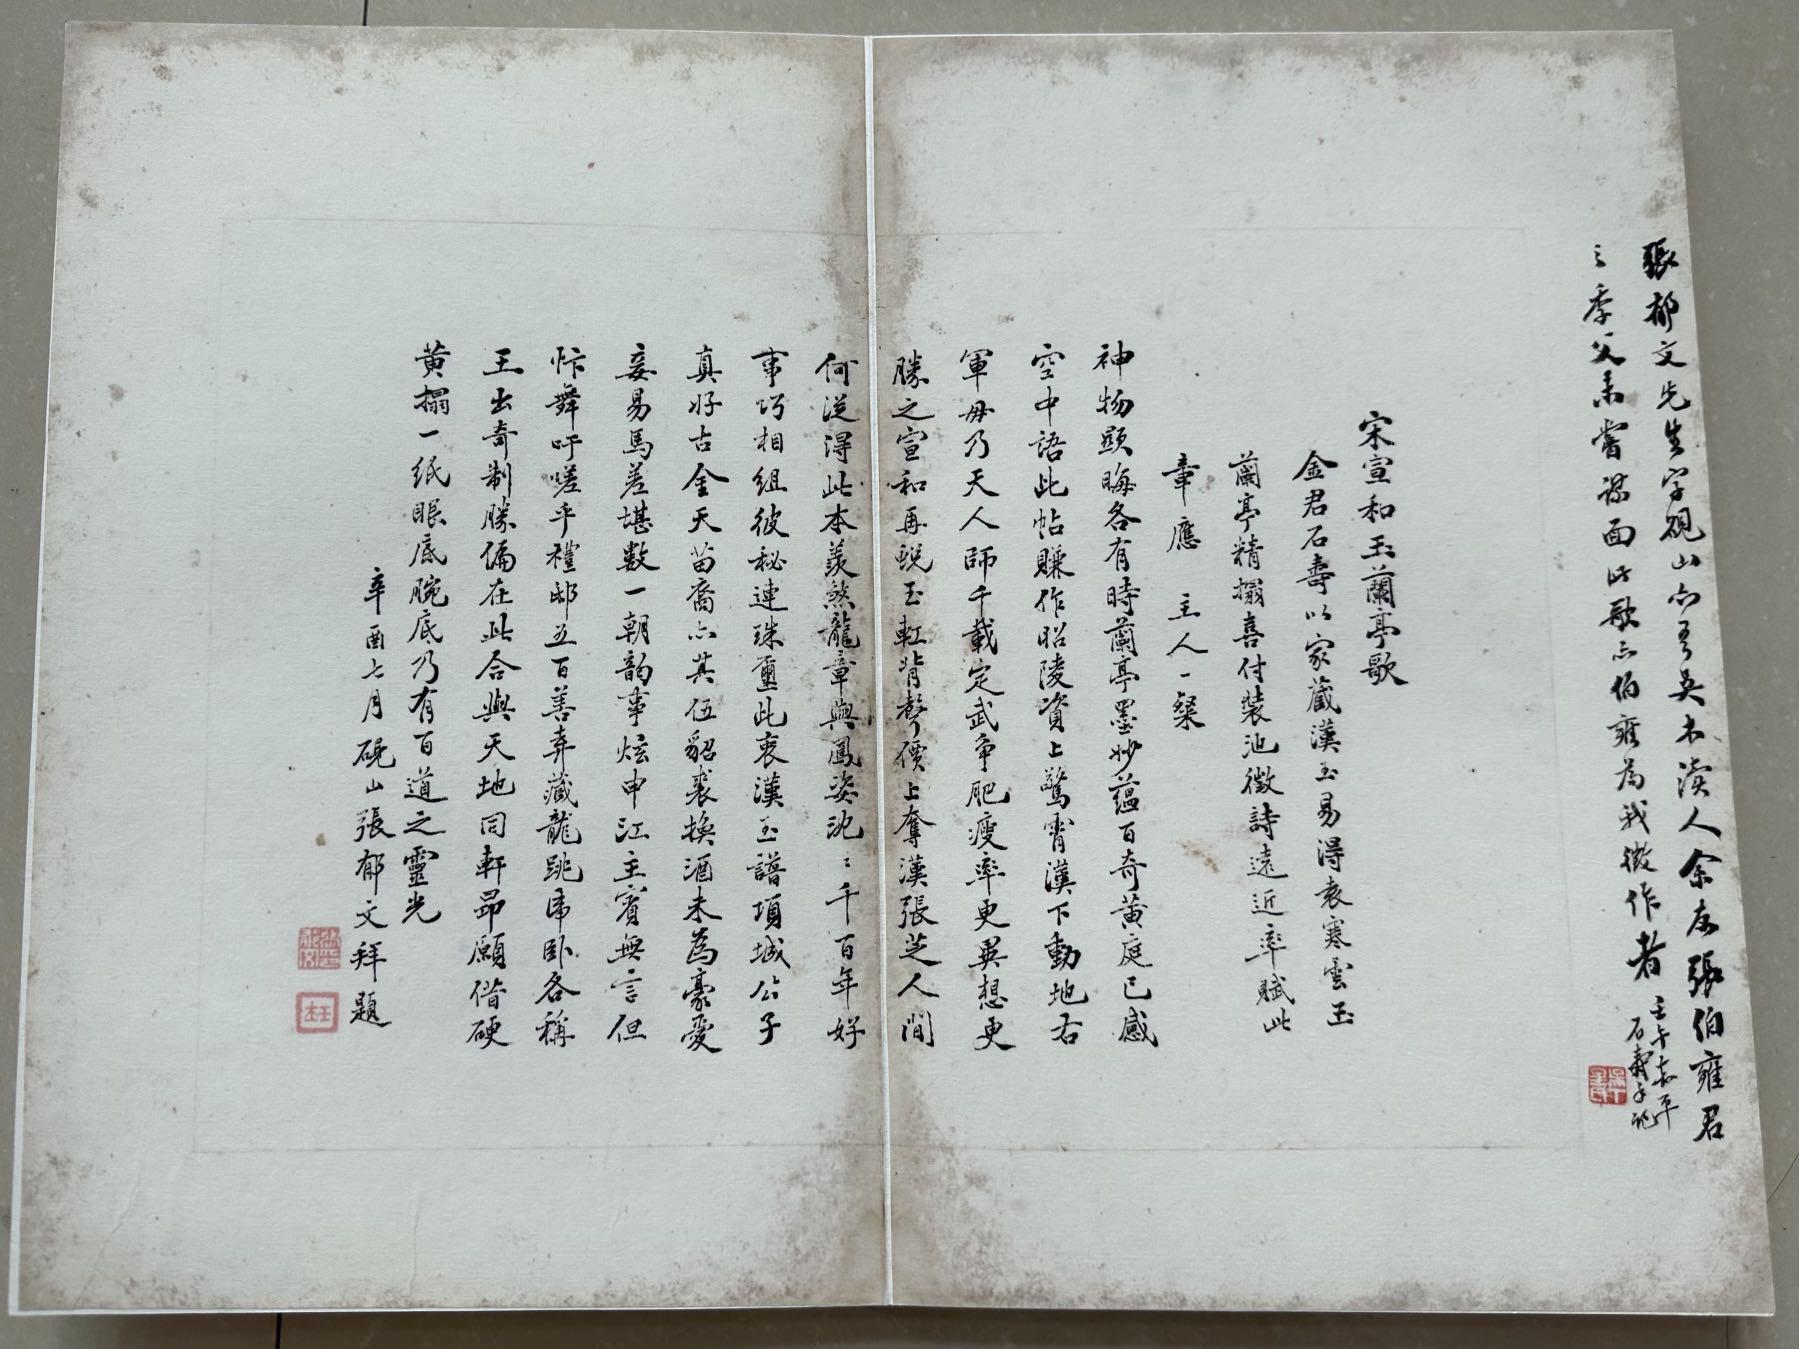 張郁文先生字硯山亦吾吳木瀆人余友張伯雍君
之季父未嘗謀面此歌亦伯雍為我徵作者
壬午春平
石壽手記
宋宣和玉蘭亭歌
金君石壽以家藏漢玉易得袁寒雲玉
蘭亭精搨喜付裝池徵詩遠近率賦此
章應 主人一粲
神物顯晦各有時蘭亭墨妙蘊百奇黃庭已感
空中語此帖賺作昭陵資上驚霄漢下動地右
軍毋乃天人師千載定武爭肥瘦率更異想更
勝之宣和再蛻玉虹背聲價上奪漢張芝人間
何從得此本羨煞龍章與鳳姿沈〻千百年好
事巧相組彼秘連珠璽此衷漢玉譜項城公子
真好古金天苗裔亦其伍貂裘換酒未為豪愛
妾易馬差堪數一朝韵事炫申江主賓無言但
忭舞吁嗟乎禮邸五百善弆藏龍跳虎臥各稱
王出奇制勝偏在此合與天地同軒昂願借硬
黃搨一紙眼底腕底乃有百道之靈光
辛酉七月硯山張郁文拜題